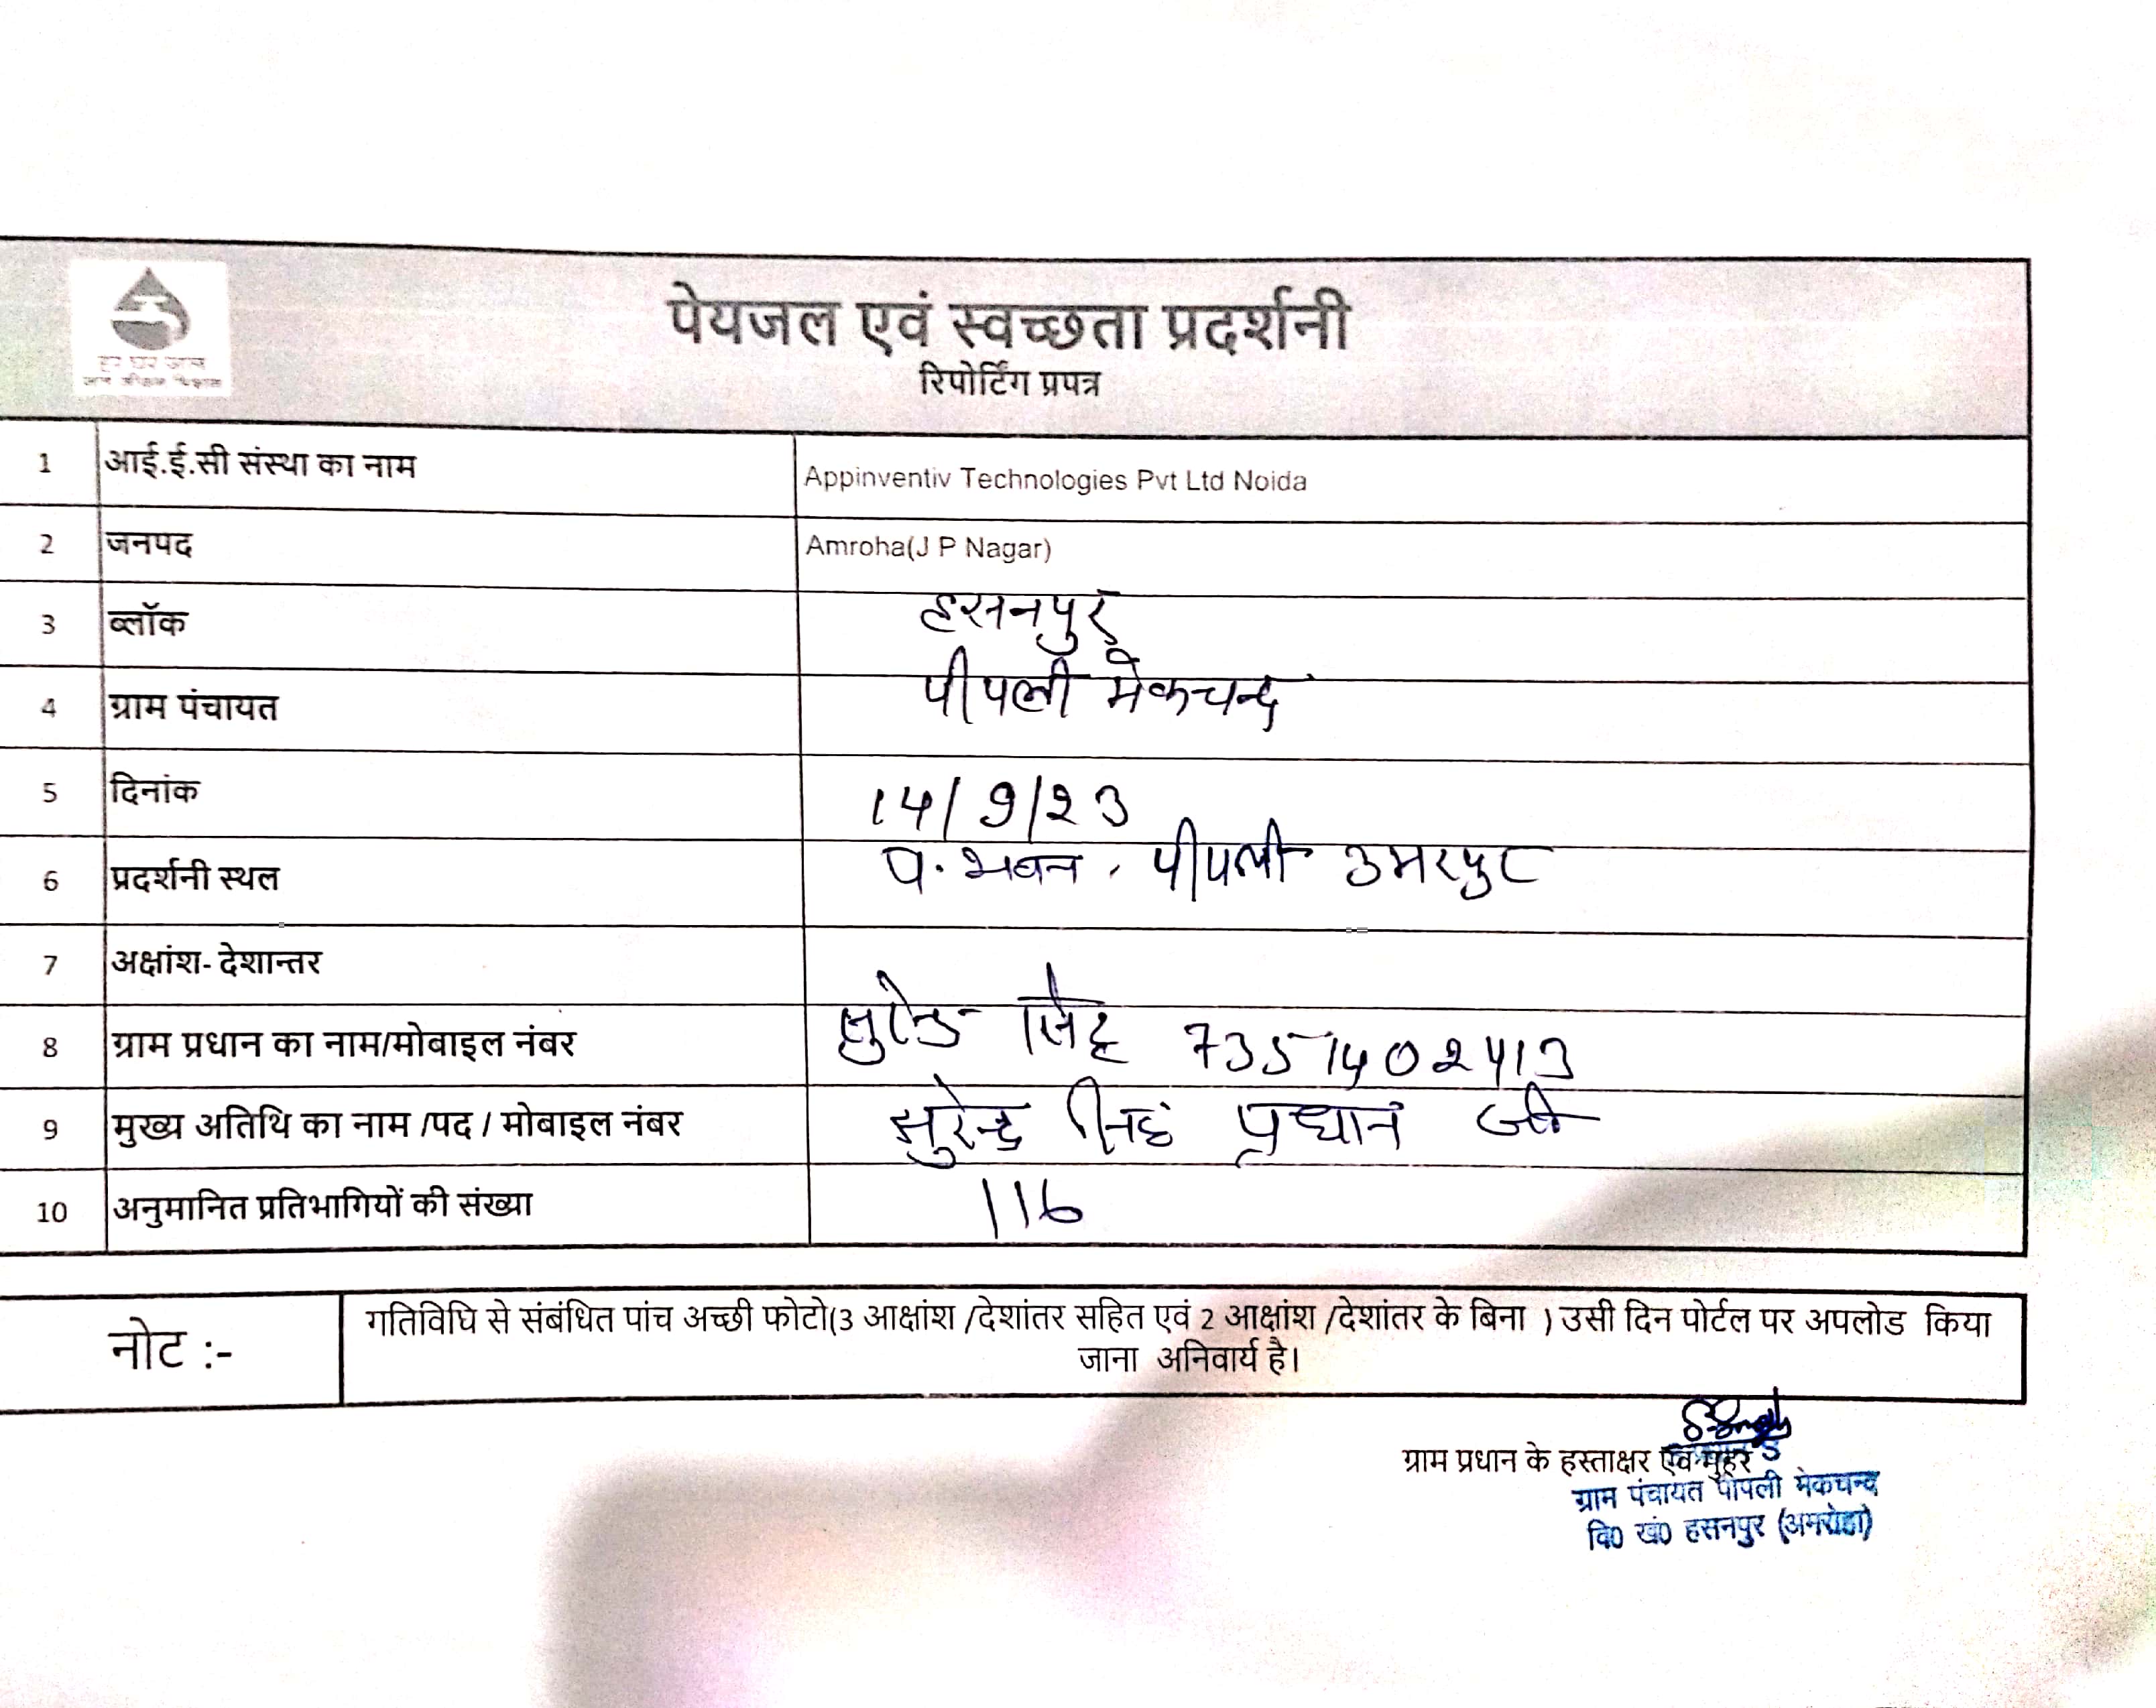 हर घर जल
पेयजल एवं स्वच्छता प्रदर्शनी
रिपोर्टिंग प्रपत्र
1 आई.ई.सी संस्था का नाम Appinventiv Technologies Pvt Ltd Noida
2 जनपद Amroha(J P Nagar)
3 ब्लॉक हसनपुर
4 ग्राम पंचायत पीपली मेकचन्द
5 दिनांक 14/9/23
6 प्रदर्शनी स्थल प. भवन, पीपली उमरपुर
7 अक्षांश- देशान्तर
8 ग्राम प्रधान का नाम/मोबाइल नंबर सिंह 7351402413
9 मुख्य अतिथि का नाम /पद / मोबाइल नंबर सुरेन्द्र सिहं प्रधान जी
10 अनुमानित प्रतिभागियों की संख्या 116
नोट :- गतिविधि से संबंधित पांच अच्छी फोटो(3 आक्षांश /देशांतर सहित एवं 2 आक्षांश /देशांतर के बिना ) उसी दिन पोर्टल पर अपलोड किया
जाना अनिवार्य है।
ग्राम प्रधान के हस्ताक्षर एवं मुहर
ग्राम पंचायत पीपली मेकचन्द
वि0 खं0 हसनपुर (अमरोहा)